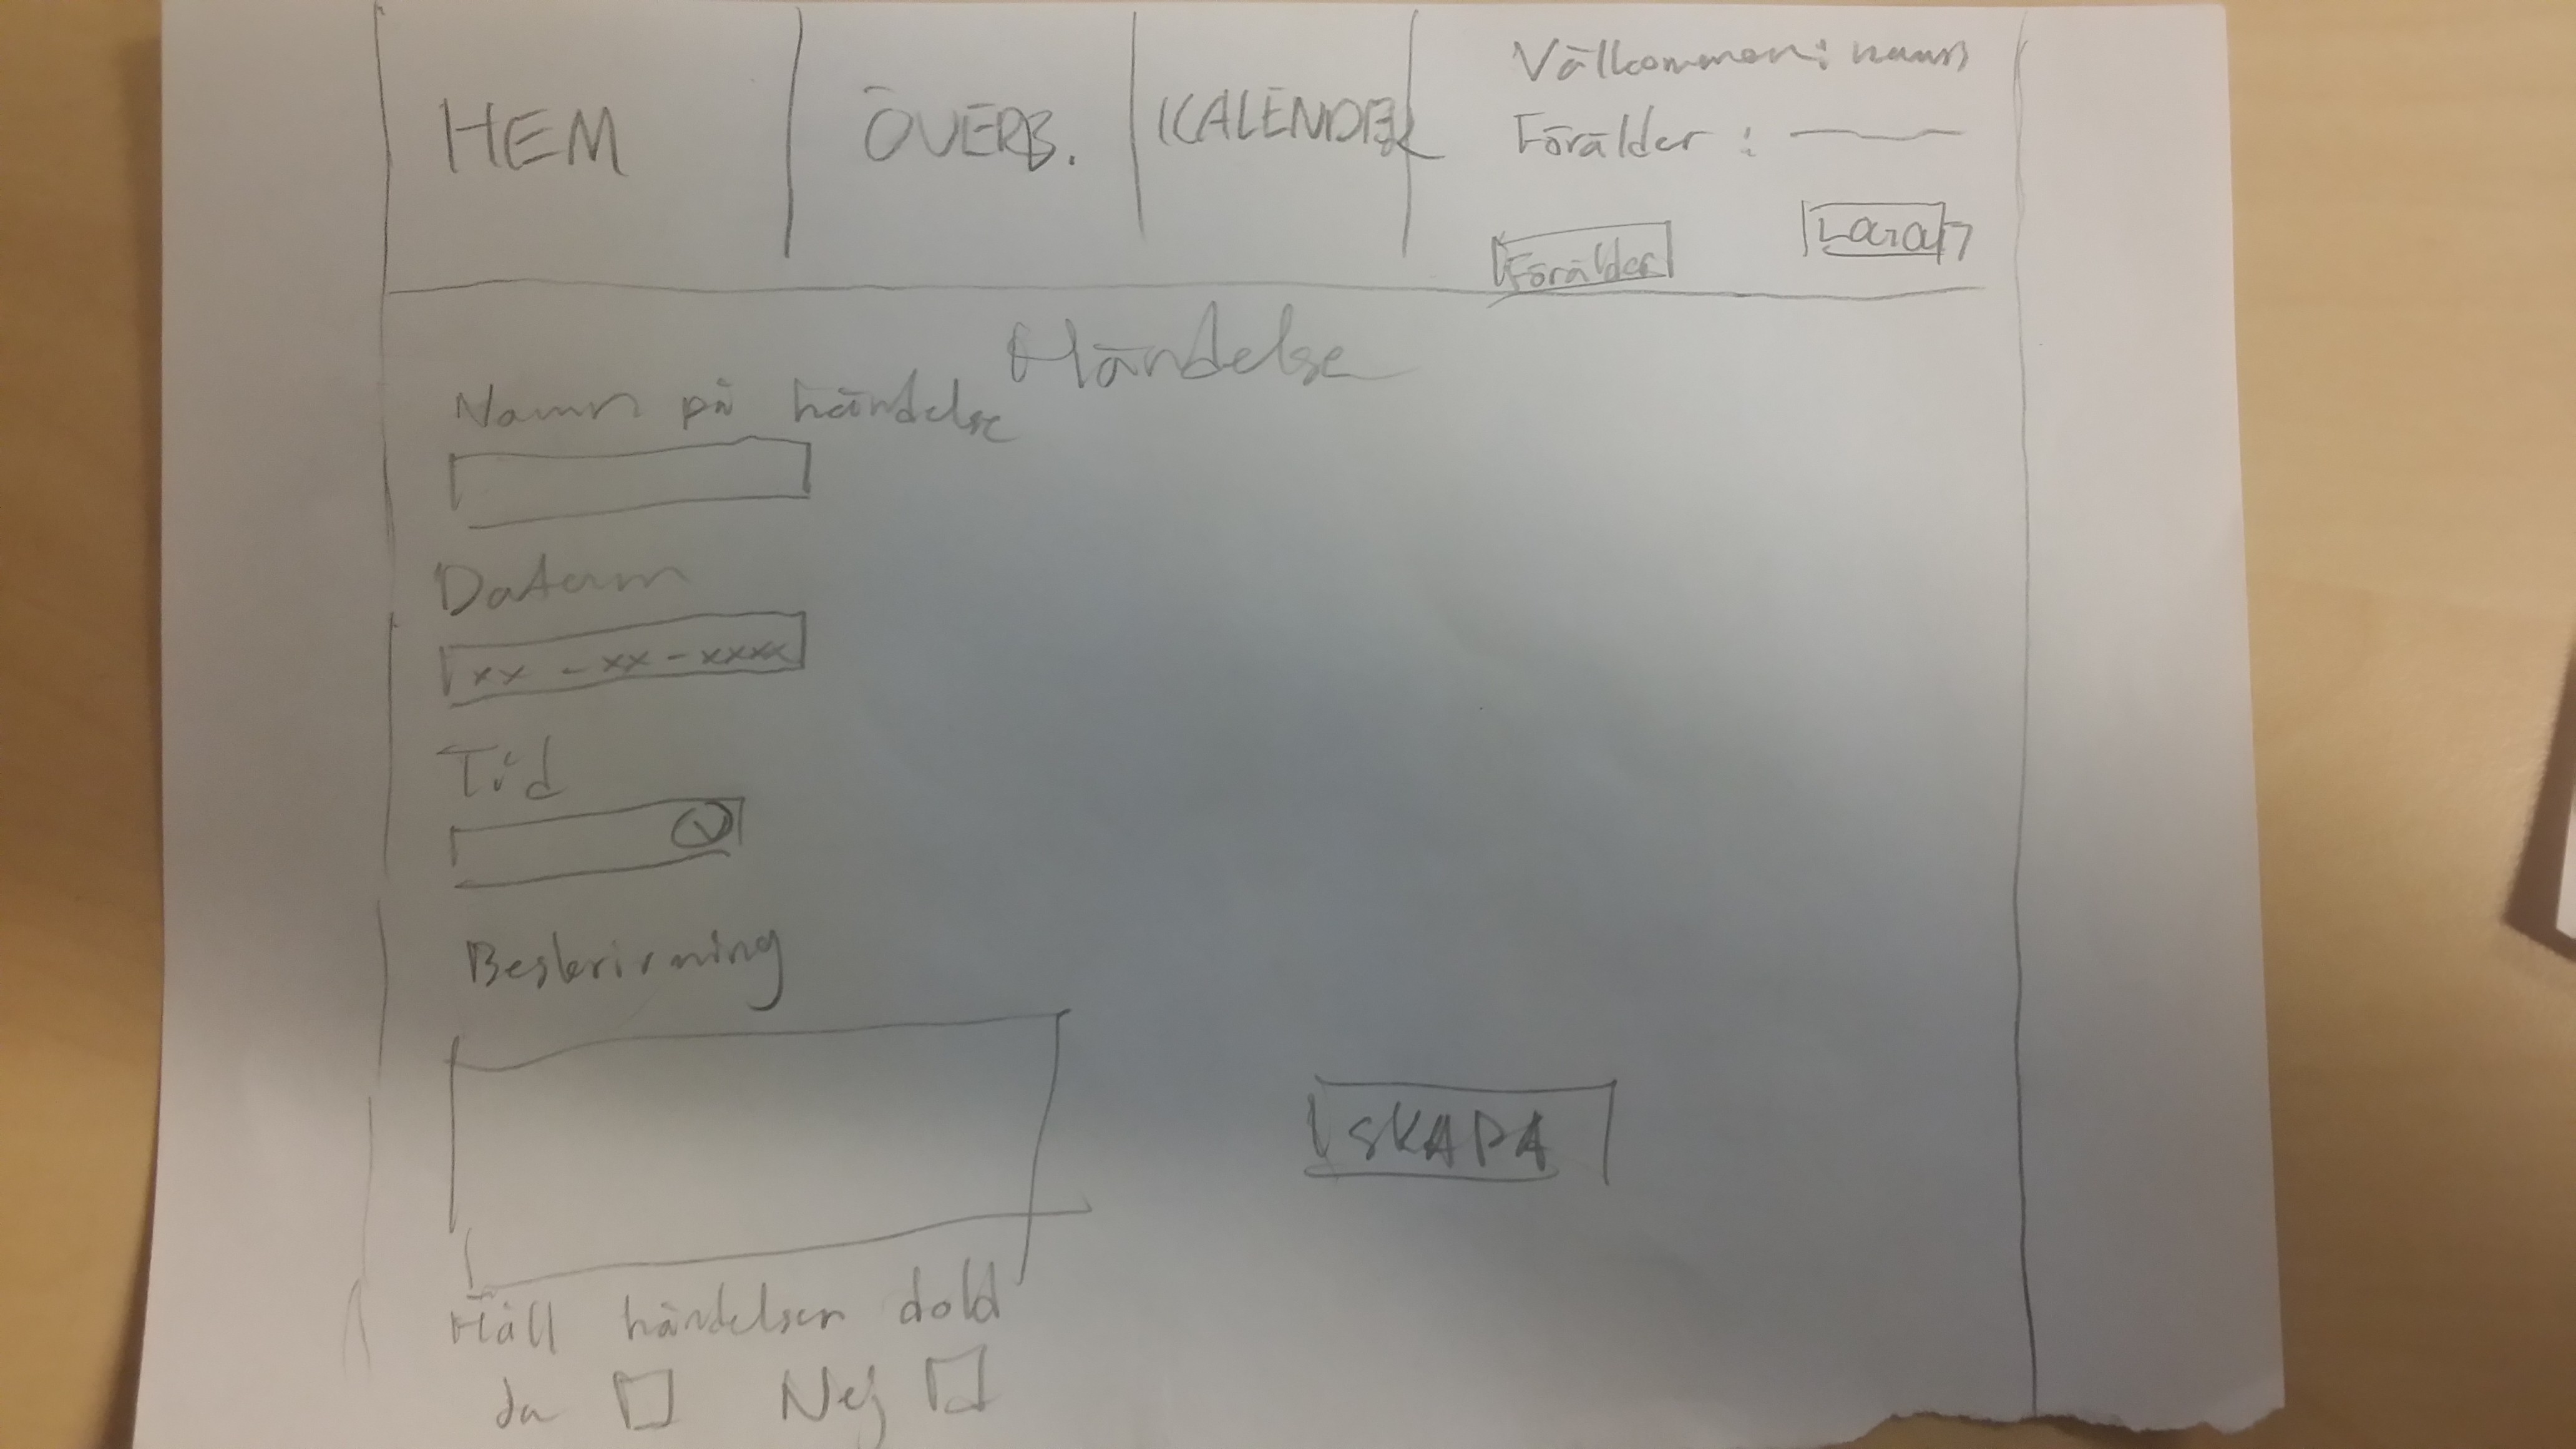 HEM ÖVERB. KALENDER
Välkommen: namn
Förälder :
Förälder
Händelse
Namn på händelse
Datum
xx - xx - xxxx
Tid
Beskrivning
SKAPA
Håll händelsen dold
Ja Nej